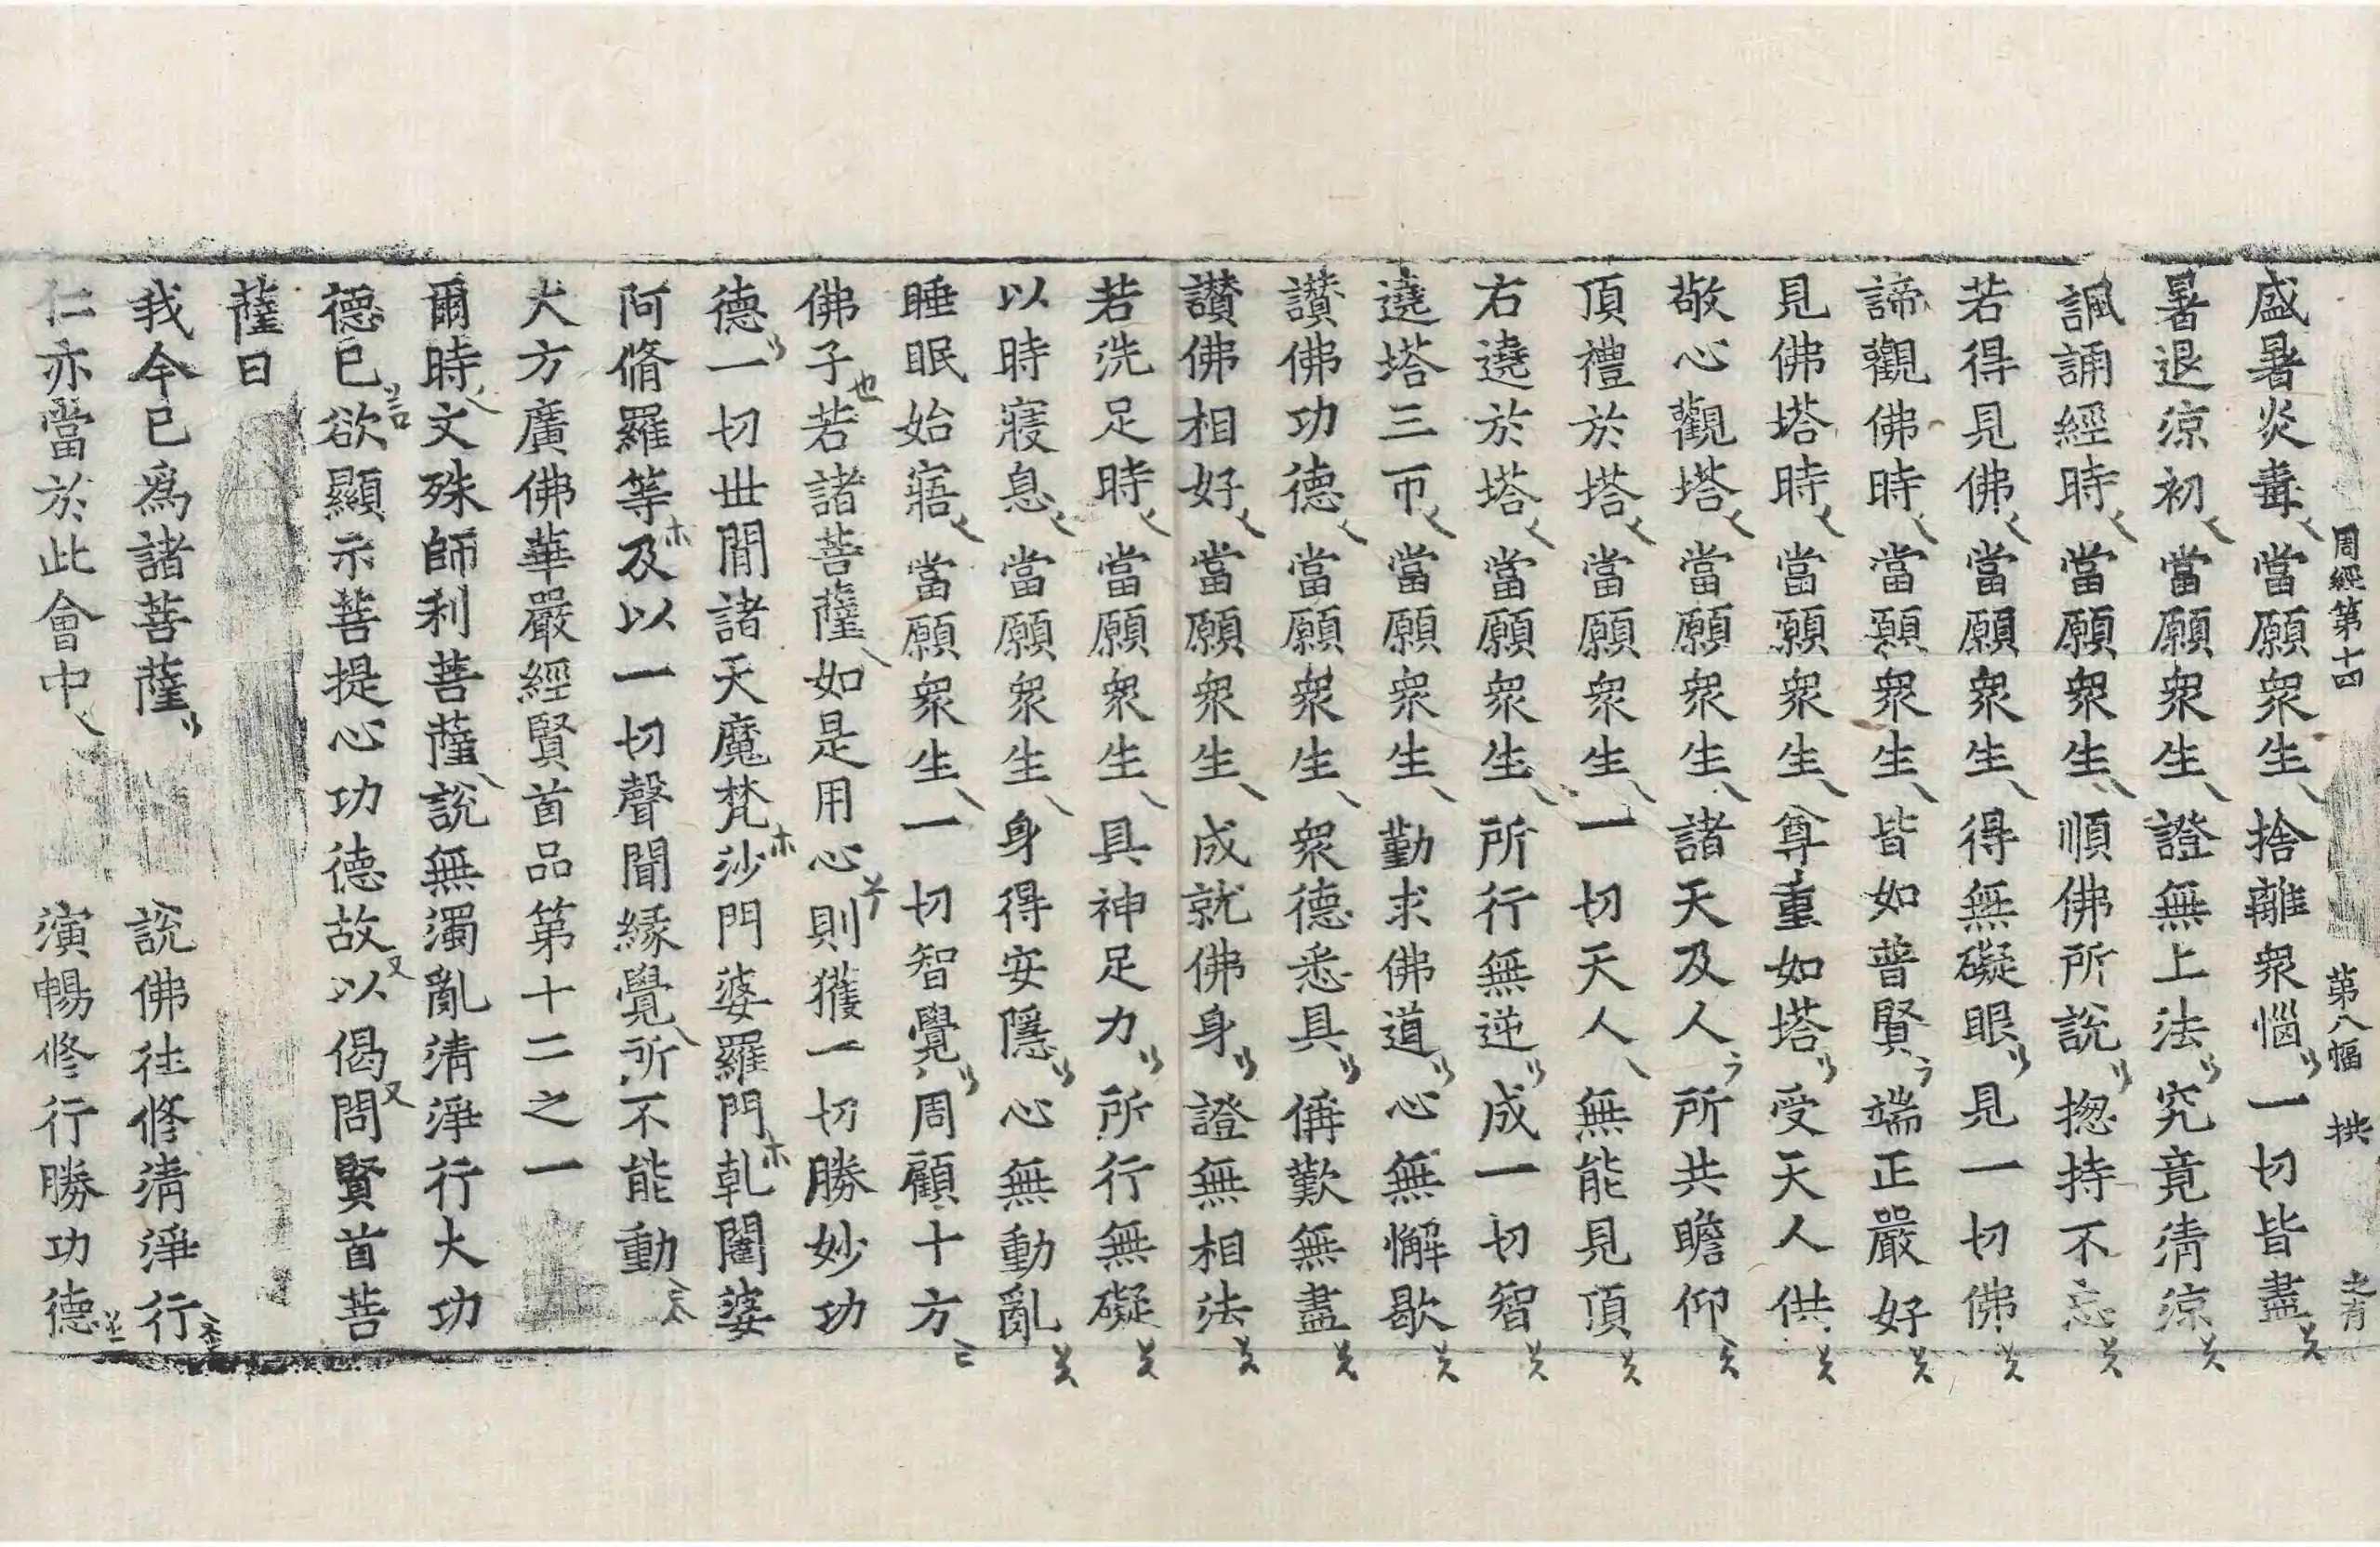 周經第十四 第八幅 拱
盛暑炎毒 當願衆生 捨離衆惱 一切皆盡
暑退涼初 當願衆生 證無上法 究竟清涼
諷誦經時 當願衆生 順佛所說 揔持不忘
若得見佛 當願衆生 得無礙眼 見一切佛
諦觀佛時 當願衆生 皆如普賢 端正嚴好
見佛塔時 當願衆生 尊重如塔 受天人供
敬心觀塔 當願衆生 諸天及人 所共瞻仰
頂禮於塔 當願衆生 一切天人 無能見頂
右遶於塔 當願衆生 所行無逆 成一切智
遶塔三帀 當願衆生 勤求佛道 心無懈歇
讃佛功德 當願衆生 衆德悉具 偁歎無盡
讃佛相好 當願衆生 成就佛身 證無相法
若洗足時 當願衆生 具神足力 所行無礙
以時寢息 當願衆生 身得安隱 心無動亂
睡眠始寤 當願衆生 一切智覺 周顧十方
佛子若諸菩薩如是用心則獲一切勝妙功
德一切世間諸天魔梵沙門婆羅門乹闥婆
阿脩羅等及以一切聲聞緣覺所不能動
大方廣佛華嚴經賢首品第十二之一
爾時文殊師利菩薩說無濁亂清淨行大功
德已欲顯示菩提心功德故以偈問賢首菩
薩曰
我今已爲諸菩薩 說佛往修清淨行
仁亦當於此會中 演暢修行勝功德